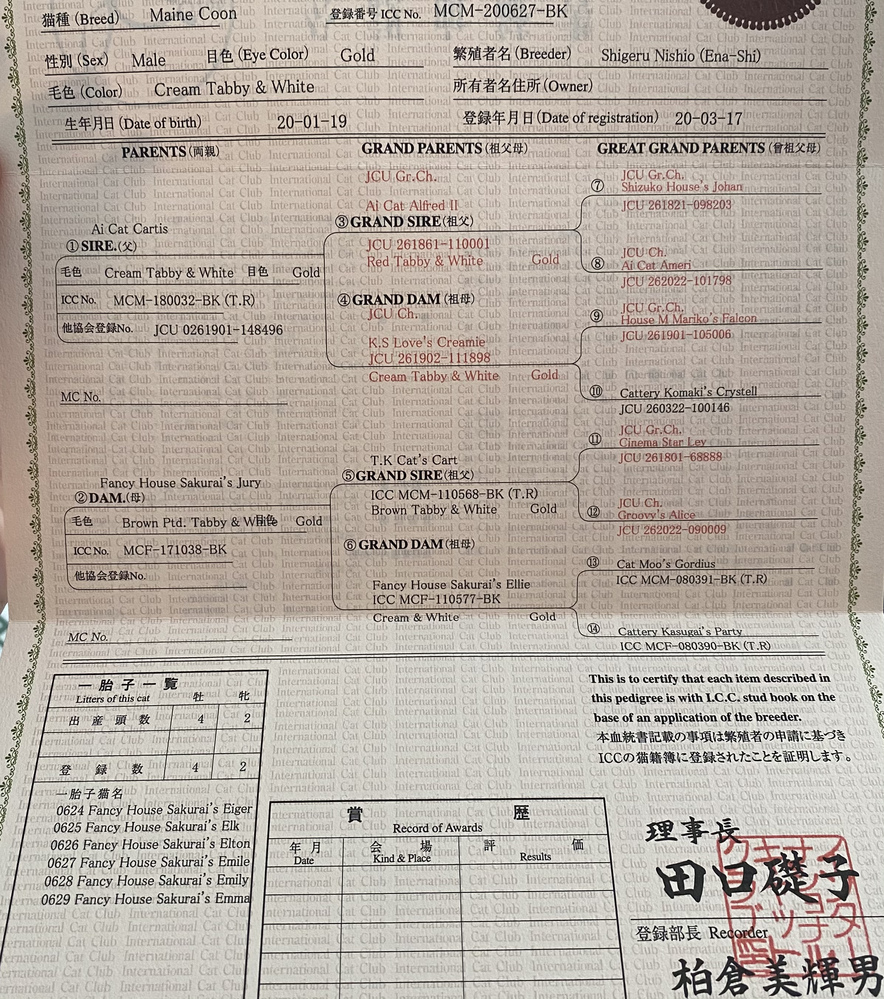 猫種 (Breed) Maine Coon 登録番号 ICC No. MCM-200627-BK
性別 (Sex) Male 目色 (Eye Color) Gold 繁殖者名 (Breeder) Shigeru Nishio (Ena-Shi)
毛色 (Color) Cream Tabby & White 所有者名住所 (Owner)
生年月日 (Date of birth) 20-01-19 登録年月日 (Date of registration) 20-03-17
PARENTS (両親) GRAND PARENTS (祖父母) GREAT GRAND PARENTS (曾祖父母)
Ai Cat Cartis
①SIRE.(父)
毛色 Cream Tabby & White 目色 Gold
ICC No. MCM-180032-BK (T.R)
他協会登録No. JCU 0261901-148496
MC No.
Fancy House Sakurai's Jury
②DAM.(母)
毛色 Brown Ptd. Tabby & White 目色 Gold
ICC No. MCF-171038-BK
他協会登録No.
MC No.
JCU Gr.Ch.
Ai Cat Alfred II
③GRAND SIRE(祖父)
JCU 261861-110001
Red Tabby & White Gold
④GRAND DAM (祖母)
JCU Ch.
K.S Love's Creamie
JCU 261902-111898
Cream Tabby & White Gold
T.K Cat's Cart
⑤GRAND SIRE(祖父)
ICC MCM-110568-BK (T.R)
Brown Tabby & White Gold
⑥GRAND DAM (祖母)
Fancy House Sakurai's Ellie
ICC MCF-110577-BK
Cream & White Gold
JCU Gr.Ch.
⑦ Shizuko House's Johan
JCU 261821-098203
JCU Ch.
⑧ Ai Cat Ameri
JCU 262022-101798
JCU Gr.Ch.
⑨ House M Mariko's Falcon
JCU 261901-105006
⑩ Cattery Komaki's Crystell
JCU 260322-100146
JCU Gr.Ch.
⑪ Cinema Star Ley
JCU 261801-68888
JCU Ch.
⑫ Groovy's Alice
JCU 262022-090009
⑬ Cat Moo's Gordius
ICC MCM-080391-BK (T.R)
⑭ Cattery Kasugai's Party
ICC MCF-080390-BK (T.R)
一胎子一覧
Litters of this cat 牡 牝
出産頭数 4 2
登録数 4 2
一胎子猫名
0624 Fancy House Sakurai's Eiger
0625 Fancy House Sakurai's Elk
0626 Fancy House Sakurai's Elton
0627 Fancy House Sakurai's Emile
0628 Fancy House Sakurai's Emily
0629 Fancy House Sakurai's Emma
賞歴
Record of Awards
年月 会場 評価
Date Kind & Place Results
This is to certify that each item described in
this pedigree is with I.C.C. stud book on the
base of an application of the breeder.
本血統書記載の事項は繁殖者の申請に基づき
ICCの猫籍簿に登録されたことを証明します。
理事長
田口礎子
登録部長 Recorder
柏倉美輝男
International Cat Club